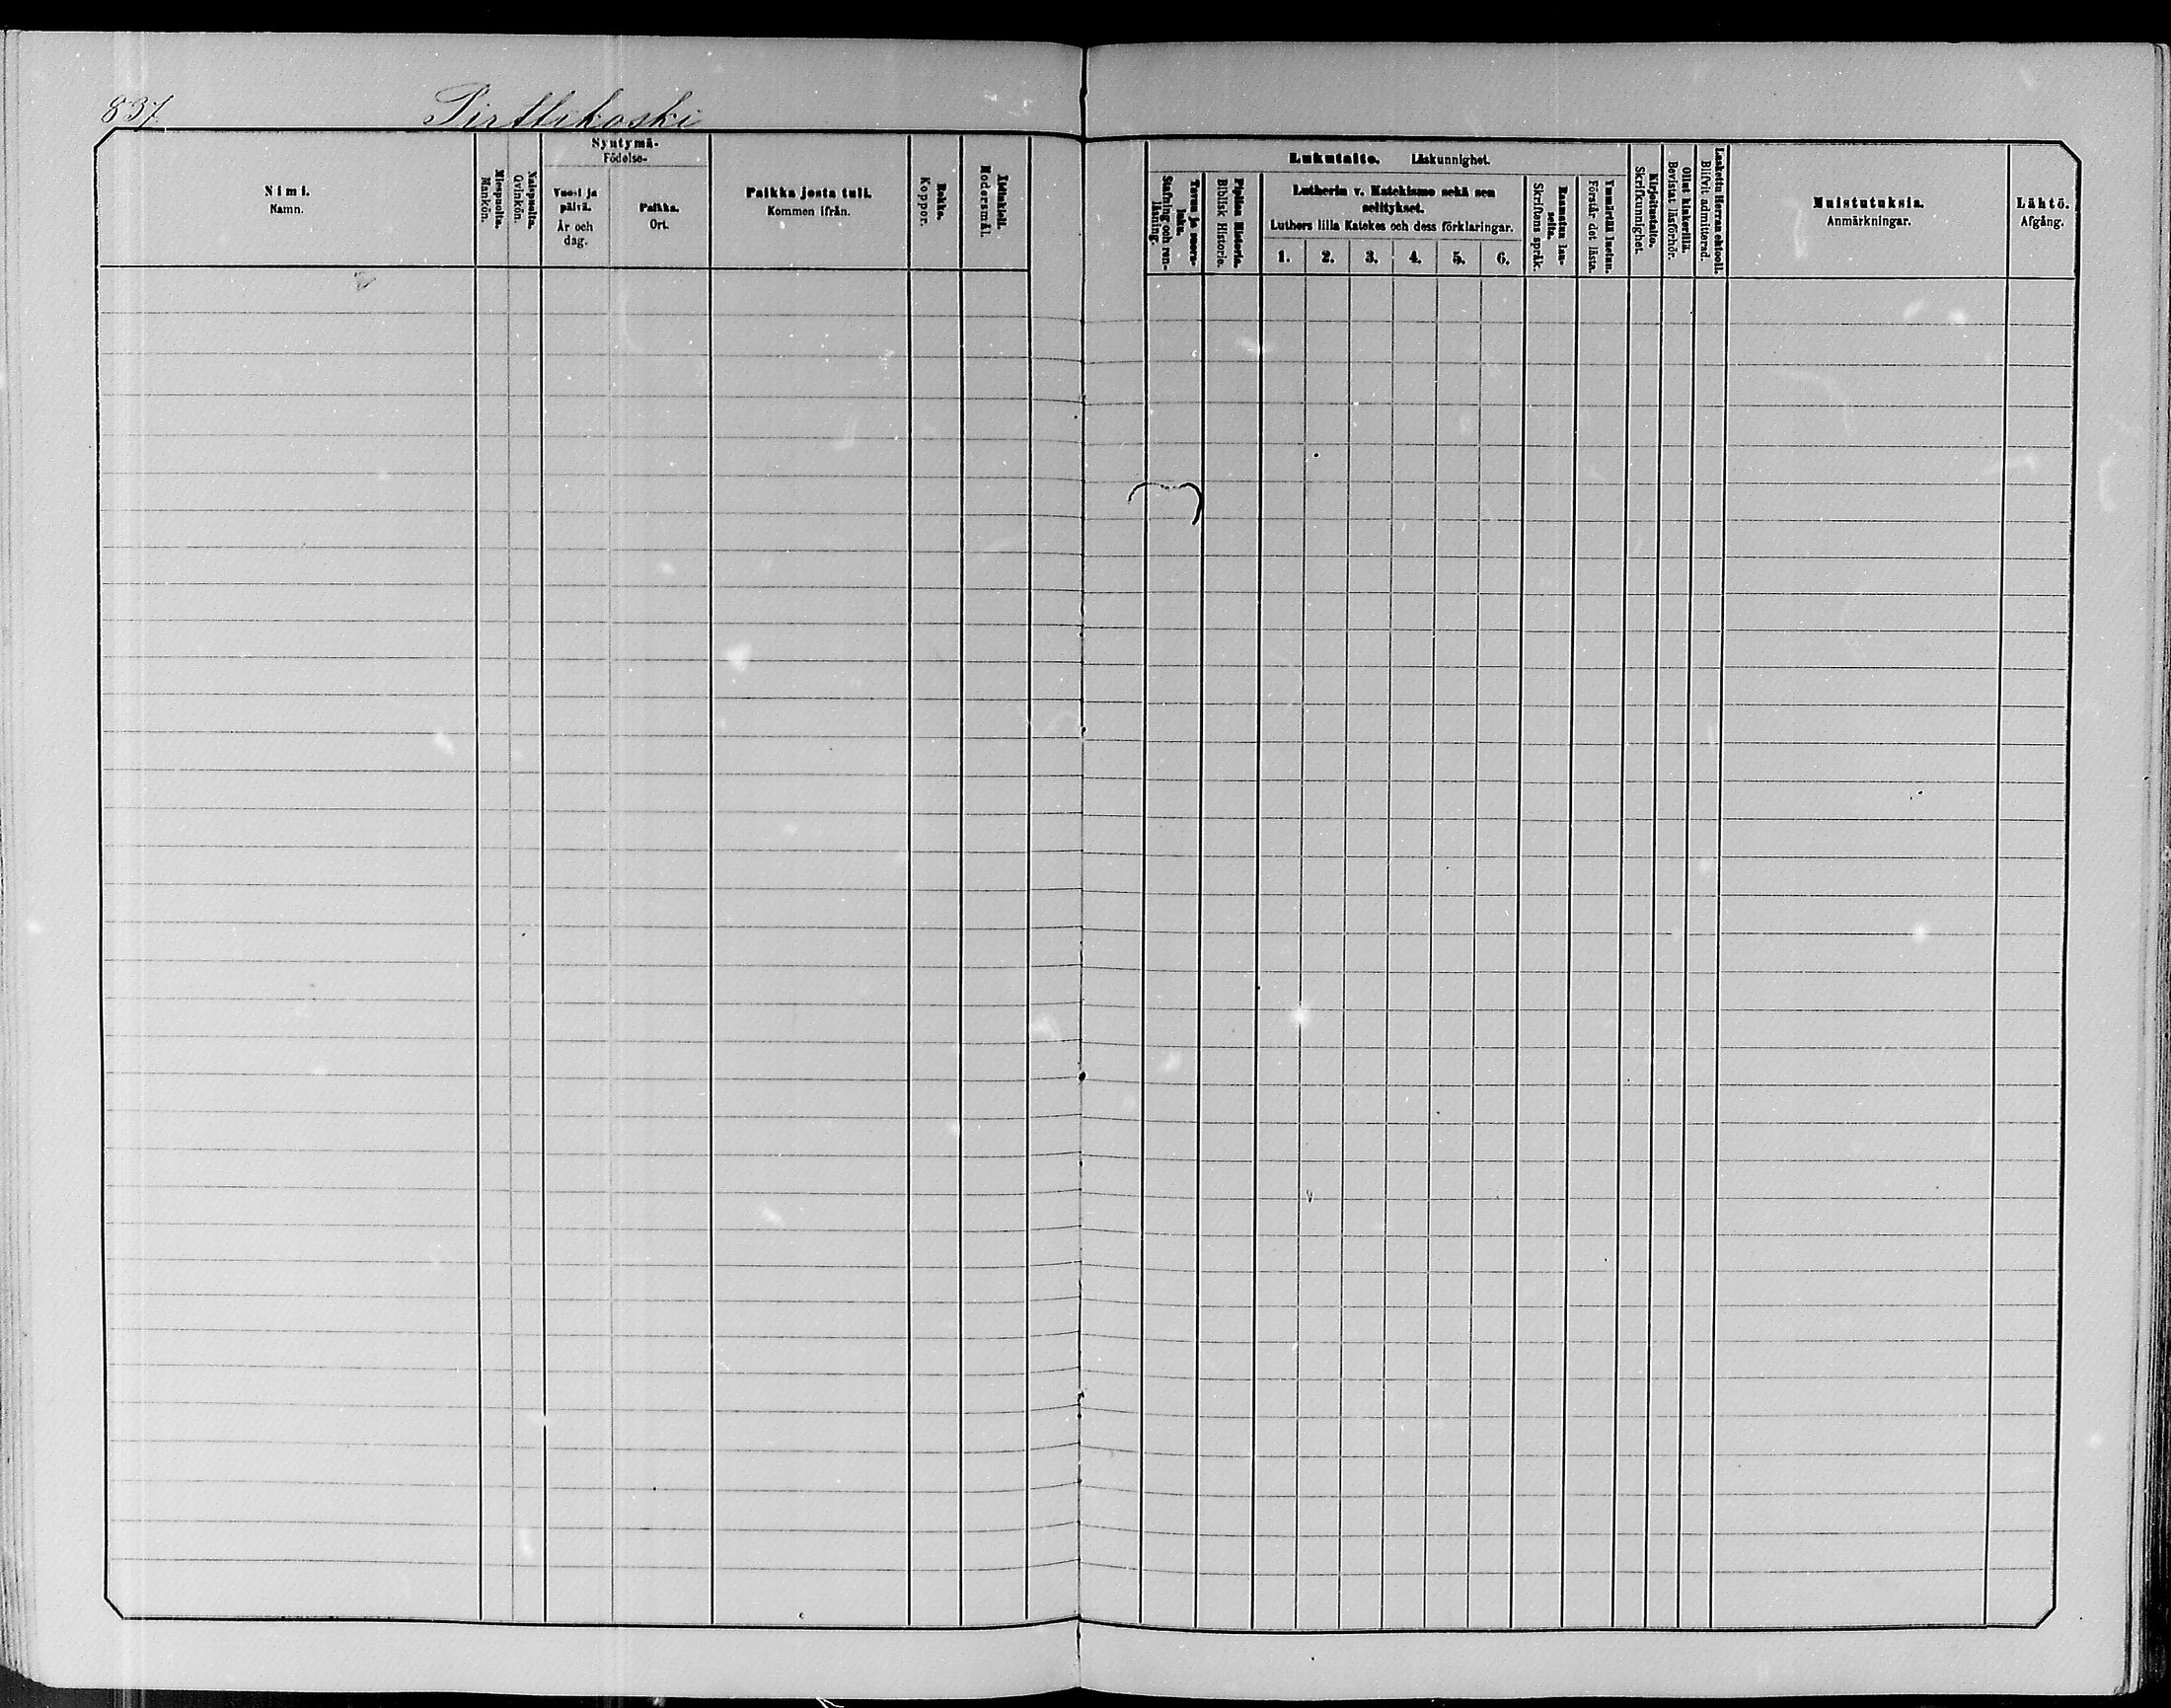 837
Pirttikoski
Nimi.
Namn.
Miespuolta.
Mankön.
Naispuolta.
Qvinkön.
Syntymä-
Födelse-
Vuosi ja
päivä.
År och
dag.
Paikka.
Ort.
Paikka josta tuli.
Kommen ifrån.
Rokko.
Koppor.
Äidinkieli.
Modersmål.
Lukutaito. Läskunnighet.
Tavuu ja suora-
luku.
Stafning och ren-
läsning.
Piplian Historia.
Biblisk Historie.
Lutherin v. Katekismo sekä sen
selitykset.
Luthers lilla Katekes och dess förklaringar.
1. 2. 3. 4. 5. 6.
Raamatun lau-
seita.
Skriftens språk.
Ymmärtää luetun.
Förstår det lästa.
Kirjoitustaito.
Skrifkunnighet.
Ollut kinkerillä.
Bevistat läsförhör.
Laskettu Herran ehtooll.
Blifvit admitterad.
Muistutuksia.
Anmärkningar.
Lähtö.
Afgång.